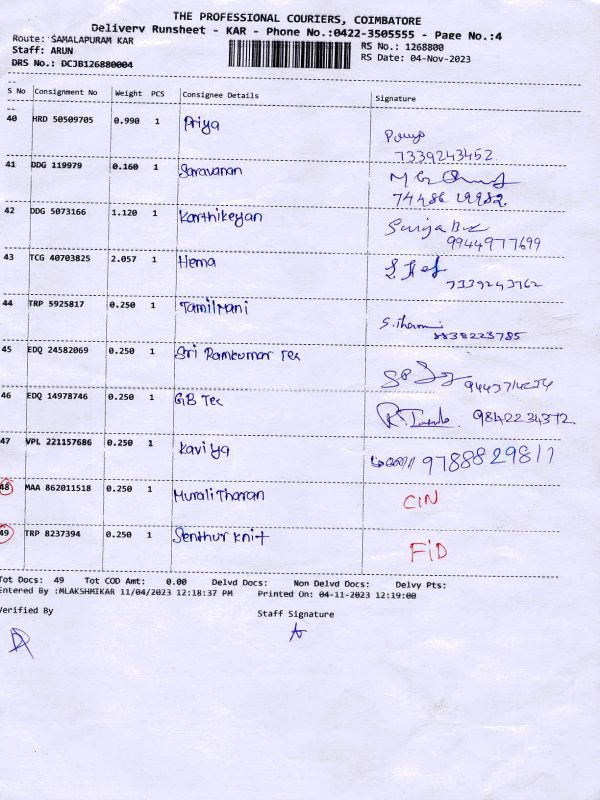 THE PROFESSIONAL COURIERS, COIMBATORE
Delivery Runsheet - KAR - Phone No.:0422-3505555 - Page No.:4
Route: SAMALAPURAM KAR RS No.: 1268800
Staff: ARUN RS Date: 04-Nov-2023
DRS No.: DCJB126880004
S No Consignment No Weight PCS Consignee Details Signature
40 HRD 50509705 0.990 1 Priya
7339243452
41 DDG 119979 0.160 1 Saravanan
42 DDG 5073166 1.120 1 Karthikeyan
9944977699
43 TCG 40703825 2.057 1 Hema
7339243762
44 TRP 5925817 0.250 1 TamilMani
8838223785
45 EDQ 24582069 0.250 1 Sri Ramkumar Tex
46 EDQ 14978746 0.250 1 GB Tex 9842234372
47 VPL 221157686 0.250 1 Kaviya 9788829811
48 MAA 862011518 0.250 1 MuraliTharan CIN
49 TRP 8237394 0.250 1 Senthur Knit FID
Tot Docs: 49 Tot COD Amt: 0.00 Delvd Docs: Non Delvd Docs: Delvy Pts:
Entered By :MLAKSHMIKAR 11/04/2023 12:18:37 PM Printed On: 04-11-2023 12:19:00
Verified By Staff Signature